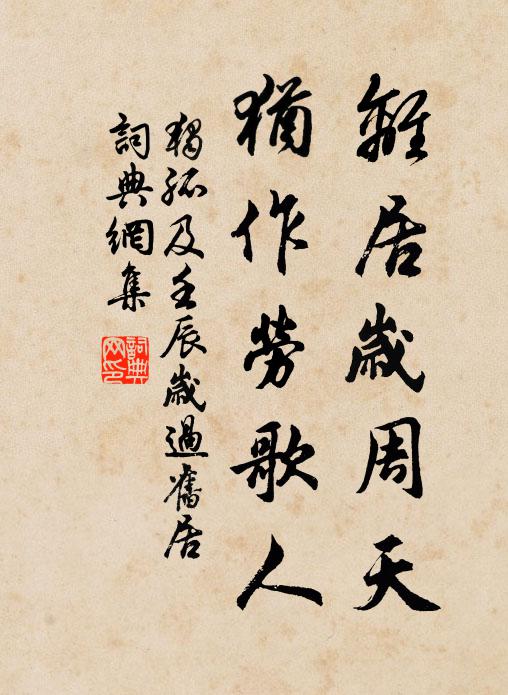 離居歲周天
猶作勞歌人
獨孤及壬辰歲過舊居
詞典網集
詞典
网印